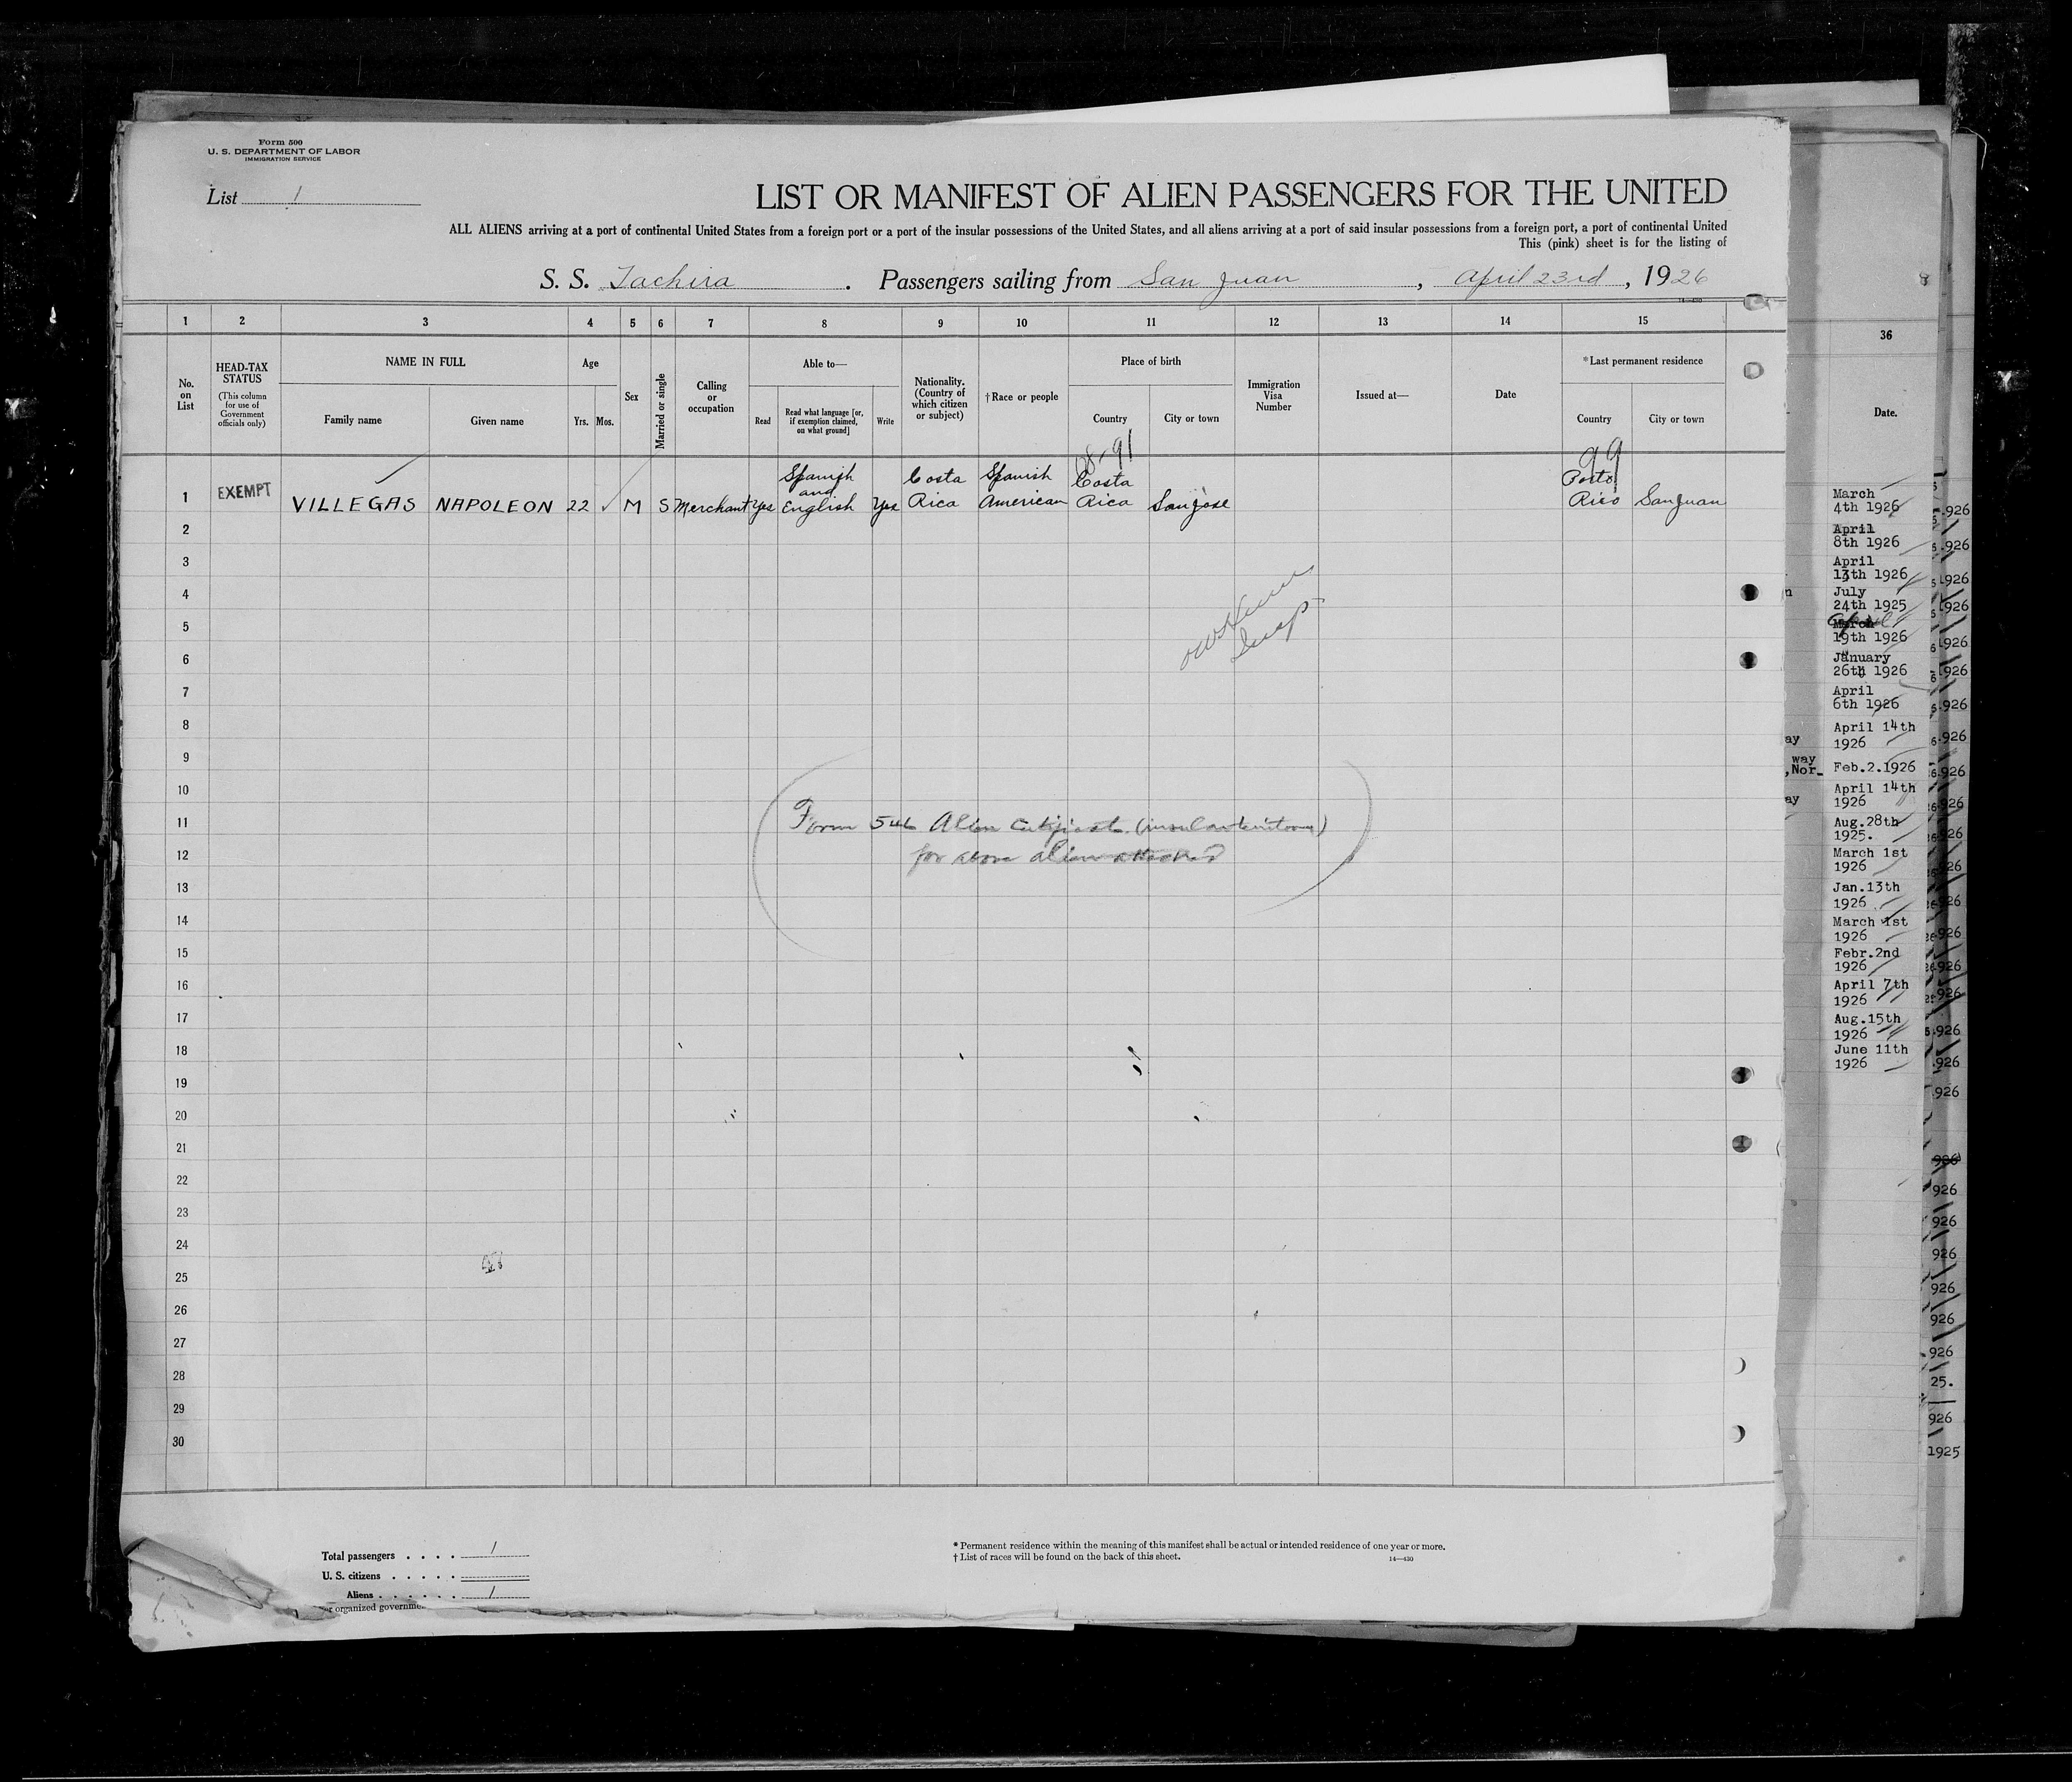 Form 500
U. S. DEPARTMENT OF LABOR
IMMIGRATION SERVICE
List 1
LIST OR MANIFEST OF ALIEN PASSENGERS FOR THE UNITED
ALL ALIENS arriving at a port of continental United States from a foreign port or a port of the insular possessions of the United States, and all aliens arriving at a port of said insular possessions from a foreign port, a port of continental United
This (pink) sheet is for the listing of
S. S. Tachira . Passengers sailing from San Juan , April 23rd , 1926
14—430
1 2 3 4 5 6 7 8 9 10 11 12 13 14 15
No. on List
HEAD-TAX STATUS
(This column for use of Government officials only)
NAME IN FULL
Family name
Given name
Age
Yrs.
Mos.
Sex
Married or single
Calling or occupation
Able to—
Read
Read what language [or, if exemption claimed, on what ground]
Write
Nationality. (Country of which citizen or subject)
†Race or people
Place of birth
Country
City or town
Immigration Visa Number
Issued at—
Date
*Last permanent residence
Country
City or town
99
1 EXEMPT VILLEGAS NAPOLEON 22 M S Merchant Yes Spanish and English Yes Costa Rica Spanish American Costa Rica San Jose Porto Rico San Juan
2
3
4
5
6
7
8
9
10
11
12
13
14
15
16
17
18
19
20
21
22
23
24
25
26
27
28
29
30
Form 546 Alien Certificate (insular territory)
for above alien attached
Total passengers . . . . 1
U. S. citizens . . . . .
Aliens . . . . . . 1
or organized governme
* Permanent residence within the meaning of this manifest shall be actual or intended residence of one year or more.
† List of races will be found on the back of this sheet.
14—430
36
Date.
March
4th 1926
April
8th 1926
April
13th 1926
July
24th 1925
April
March
19th 1926
January
26th 1926
April
6th 1926
April 14th
1926
way
,Nor-
Feb.2.1926
April 14th
1926
Aug.28th
1925.
March 1st
1926
Jan.13th
1926
March 1st
1926
Febr.2nd
1926
April 7th
1926
Aug.15th
1926
June 11th
1926